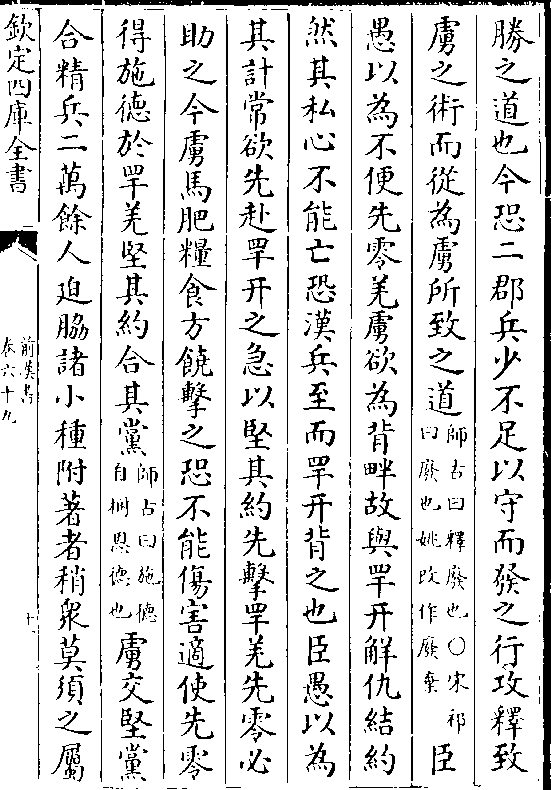 勝之道也今恐二郡兵少不足以守而發之行攻釋致
虜之術而從為虜所致之道師古曰釋廢也〇宋祁曰廢也姚改作廢棄臣
愚以為不便先零羌虜欲為背畔故與䍐幵解仇結約
然其私心不能亡恐漢兵至而䍐幵背之也臣愚以為
其計常欲先赴䍐幵之急以堅其約先擊䍐羌先零必
助之今虜馬肥糧食方饒擊之恐不能傷害適使先零
得施德於䍐羌堅其約合其黨師古曰施德自樹恩德也虜交堅黨
合精兵二萬餘人迫脇諸小種附著者稍衆莫須之屬
欽定四庫全書
前漢書
卷六十九
十